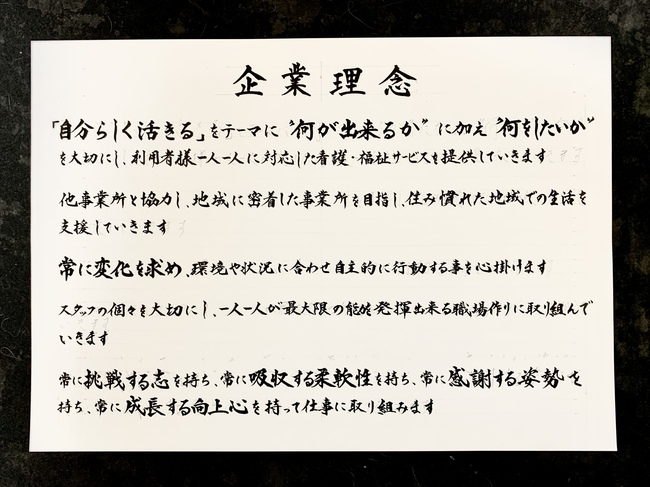 企業理念
「自分らしく活きる」をテーマに“何が出来るか”に加え“何をしたいか”
を大切にし、利用者様一人一人に対応した看護・福祉サービスを提供していきます
他事業所と協力し、地域に密着した事業所を目指し、住み慣れた地域での生活を
支援していきます
常に変化を求め、環境や状況に合わせ自主的に行動する事を心掛けます
スタッフの個々を大切にし、一人一人が最大限の能力を発揮出来る職場作りに取り組んで
いきます
常に挑戦する志を持ち、常に吸収する柔軟性を持ち、常に感謝する姿勢を
持ち、常に成長する向上心を持って仕事に取り組みます